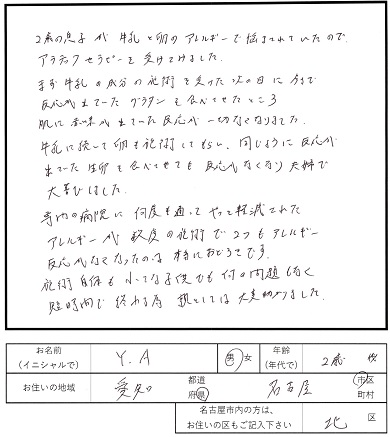 2歳の息子が牛乳と卵のアレルギーで悩まされていたので、
アラジックセラピーを受けてみました。
まず牛乳の成分の施術を受けた次の日に今まで
反応が出ていたグラタンを食べさせたところ
肌に赤味が出ていた反応が一切なくなりました。
牛乳に続いて卵も施術してもらい、同じように反応が
出ていた生卵を食べさせても反応がなくなり夫婦で
大喜びしました。
専門の病院に何度も通ってやっと軽減された
アレルギーが数度の施術で2つもアレルギー
反応がなくなったのは本当におどろきです。
施術自体も小さな子供でも何の問題もなく
短時間で終わる為、親としては大変助かりました。
お名前
(イニシャルで) Y.A 男 女 年齢
(年代で) 2歳
お住いの地域 愛知 都道
府県 名古屋 市区
町村
名古屋市内の方は、
お住いの区もご記入下さい 北 区